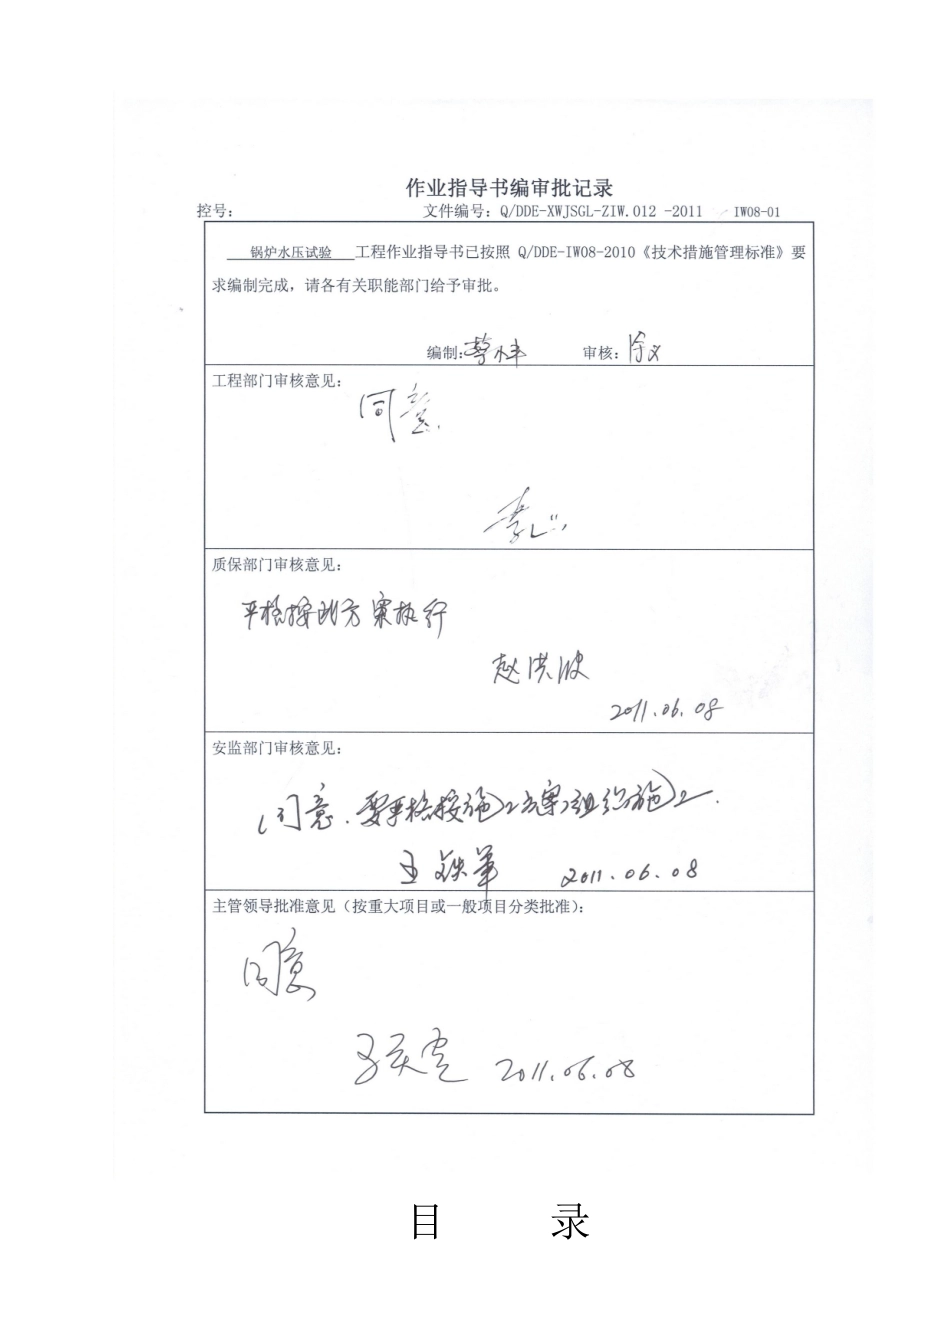 作业指导书编审批记录
控号： 文件编号：Q/DDE-XWJSGL-ZIW.012 -2011 IW08-01
锅炉水压试验 工程作业指导书已按照 Q/DDE-IW08-2010《技术措施管理标准》要
求编制完成，请各有关职能部门给予审批。
编制： 审核：
工程部门审核意见：
同意.
质保部门审核意见：
严格按此方案执行
赵洪波
2011.06.08
安监部门审核意见：
同意.要严格按施工方案组织施工.
王铁军 2011.06.08
主管领导批准意见（按重大项目或一般项目分类批准）：
同意
2011.06.08
目 录